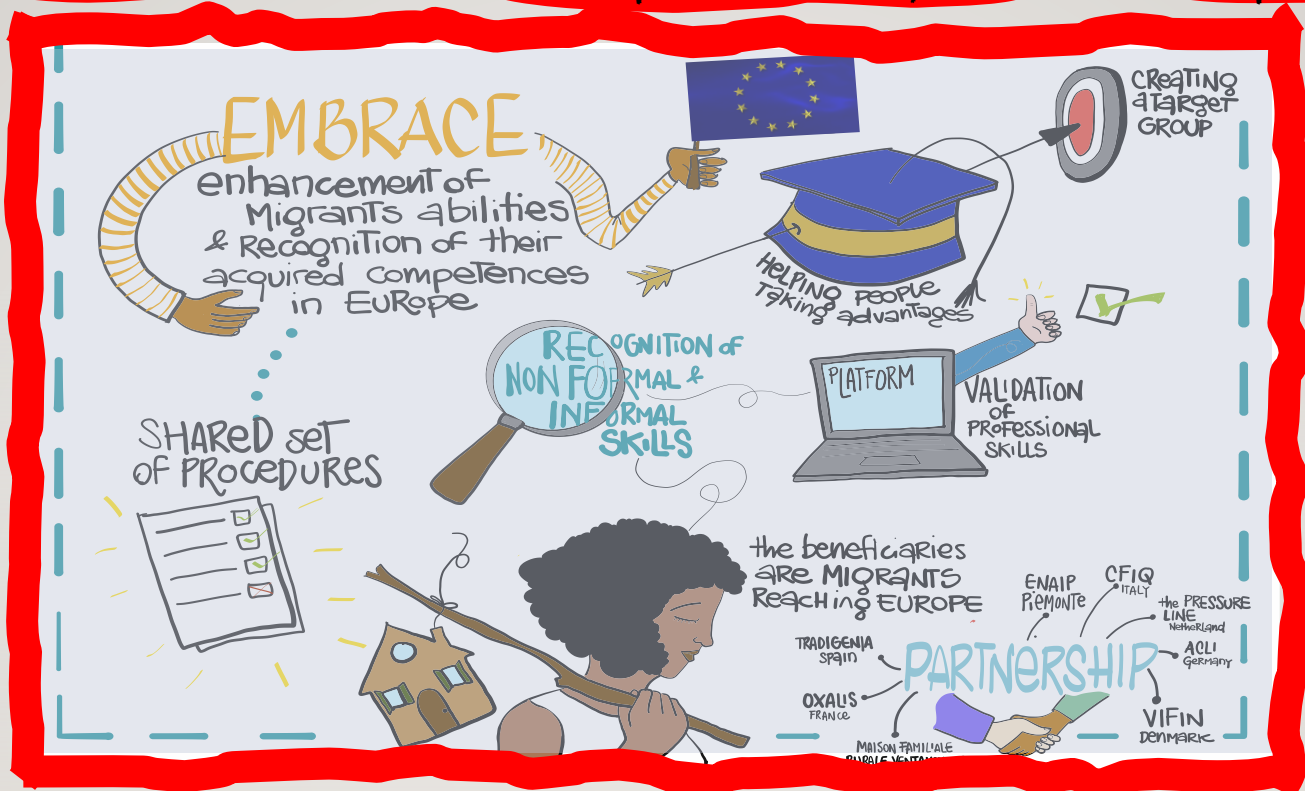 EMBRACE
enhancement of
Migrants abilities
& Recognition of their
acquired competences
in EURope
CREATING
a TARGET
GROUP
HELPING PEOPLE
Taking advantages
RECOGNITION OF
NON FORMAL &
INFORMAL
SKILLS
PLATFORM
VALIDATION
OF
PROFESSIONAL
SKILLS
SHAReD seT
OF PROCEDURES
the beneficiaries
ARE MIGRANTS
ReacHing EUROPE
PARTNERSHIP
ENAIP
PiEMONTe
CFIQ
ITALY
the PRESSURE
LINE
NetHeRland
ACLI
GeRmany
VIFIN
DENMARK
TRADIGENIA
Spain
OXALIS
FRANCe
MAISON FAMILIALE
RURALE